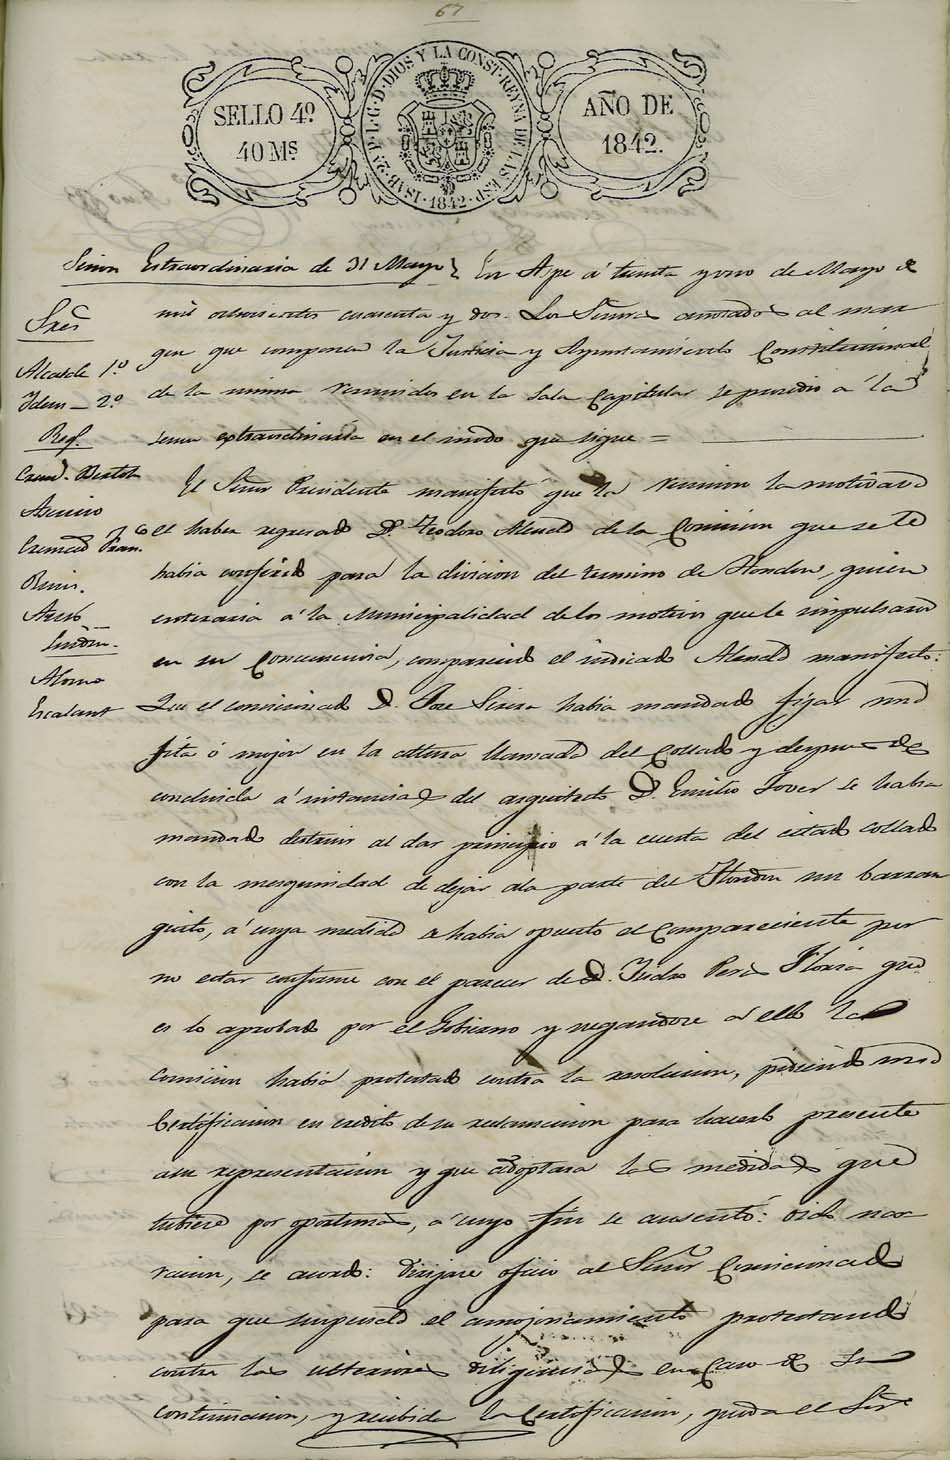 67
SELLO 4º
40 Ms
ISAB. 2ª P. L. G. D. DIOS Y LA CONST. REYNA DE LAS ESP. 1842
AÑO DE
1842.
Sesion Extraordinaria de 31 Mayo
En Aspe á treinta y uno de Mayo de
mil ochocientos cuarenta y dos. Los Señores anotados al mar
gen que componen la Justicia y Ayuntamiento Constitucional
de la misma reunidos en la Sala Capitular se procedio á la
sesion extraordinaria en el modo que sigue =
Sres
Alcalde 1.º
Ydem - 2.º
Reg.
Asencio
Cremades Fran.co
Sindic.
Alonso
Escalant
El Señor Presidente manifestó que la reunion la motivava
el haber regresado D. Teodoro Alenda de la Comision que se le
habia conferido para la division del termino de Hondon, quien
enteraria á la Municipalidad de los motivos que le impulsaron
en su concurrencia, compareciendo el indicado Alenda manifesto:
Que el comisionado D. Jose Sirera habia mandado fijar una
fita ó mojon en la altura llamada del Collado y despues de
concluida á instancias del arquitecto D. Emilio Jover se habia
mandado destruir al dar principio á la cuesta del citado collado
con la mesquindad de dejar ala parte del Hondon un barran
quito, á cuya medida se habia opuesto el compareciente por
no estar conforme con el parecer de D. Ysidro Perez Yloria que
es lo aprobado por el Gobierno y negandose á ello la
comision habia protestado contra la resolucion, pidiendo una
Certificacion en credito de su reclamacion para hacerlo presente
asu representacion y que adoptara las medidas que
tubiere por oportunas, á cuyo fin se ausentó: oida nar
racion, se acordó: dirijase oficio al Señor Comisionado
para que suspenda el amojonamiento protestando
contra las ulteriores diligencias en caso de su
continuacion, y recibida la Certificacion, pueda el Señor